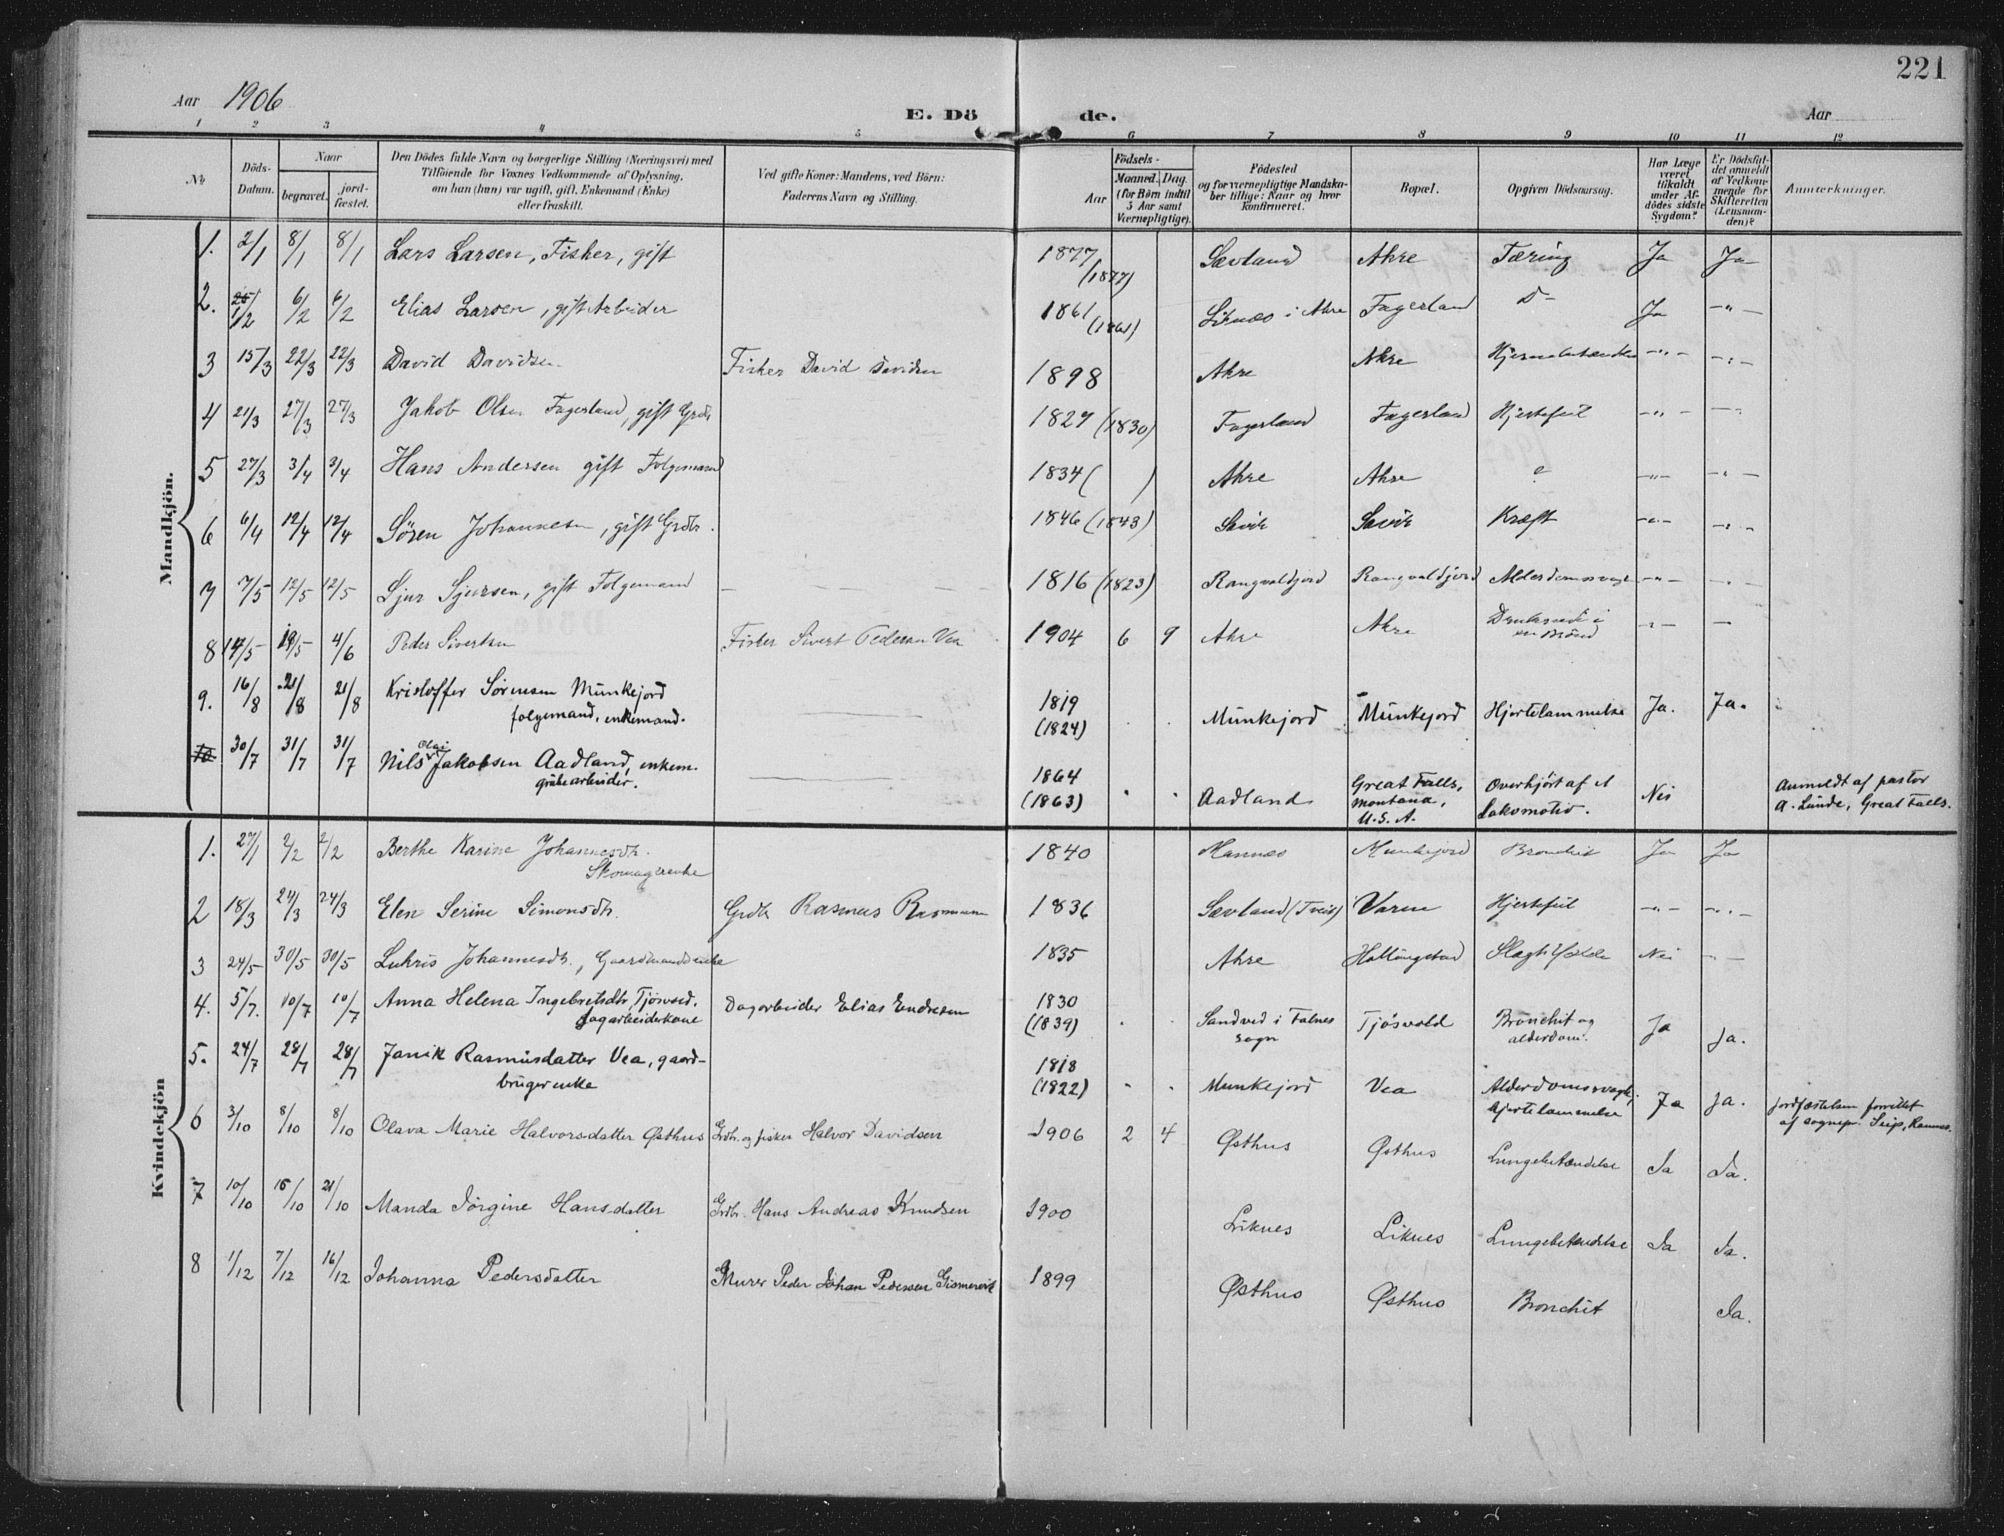 221
Aar 1906
E. Dö de.
Aar
1 2 3 4 5 6 7 8 9 10 11 12
No
Döds-Datum.
Naar
begravet.
jord-fæstet.
Den Dödes fulde Navn og borgerlige Stilling (Næringsvei) med
Tilföiende for Voxnes Vedkommende af Oplysning,
om han (hun) var ugift, gift, Enkemand (Enke)
eller fraskilt.
Ved gifte Koner: Mandens, ved Börn:
Faderens Navn og Stilling.
Födsels-
Aar
Maaned. Dag.
(for Börn indtil
5 Aar samt
Værnepligtige).
Födested
og for værnepligtige Mandska-
ber tillige: Naar og hvor
konfirmeret.
Bopæl.
Opgiven Dödsaarsag.
Har Læge
været
tilkaldt
under Af-
dödes sidste
Sygdom?
Er Dödsfal-
det anmeldt
af Vedkom-
mende for
Skifteretten
(Lensman-
den)?
Anmærkninger.
Mandkjön.
1. 2/1 8/1 8/1 Lars Larsen, Fisker, gift 1877 (1877) Sævland Akre Tæring Ja Ja
2. 1/2 6/2 6/2 Elias Larsen, gift Arbeider 1861 (1861) Liknæs i Akre Fagerland D- Ja -"-
3 15/3 22/3 22/3 David Davidsen Fisker David Davidsen 1898 Akre Akre -"- -"-
4 21/3 27/3 27/3 Jakob Olsen Fagerland, gift Grdbr 1829 (1830) Fagerland Fagerland Hjertefeil -"- -"-
5 27/3 3/4 3/4 Hans Andersen gift Folgemand 1834 ( ) Akre Akre -"- -"-
6 6/4 12/4 12/4 Sören Johannesen, gift Grdbr. 1846 (1843) Sævik Sævik Kræft -"- -"-
7 7/5 12/5 12/5 Sjur Sjursen, gift Folgemand 1816 (1823) Rangvaldjord Rangvaldjord Alderdomssvagh -"- -"-
8 14/5 19/5 4/6 Peder Sivertsen Fisker Sivert Pedersen Vea 1904 6 9 Akre Akre Druknede i
en Brönd -"- -
9. 16/8 21/8 21/8 Kristoffer Sørensen Munkejord
folgemand, enkemand. 1819
(1824) Munkejord Munkejord Hjertelammelse Ja. Ja.
10 30/7 31/7 31/7 Nils Olai Jakobsen Aadland, enkem.
grubearbeider. 1864
(1863) Aadland Great Falls,
Montana,
U.S.A. Overkjørt af et
Lokomotiv. Nei Anmeldt af pastor
A. Lunde, Great Falls.
Kvindekjön
1. 27/1 2/2 2/2 Berthe Karine Johannesdtr.
Skomagerenke 1840 Mannæs Munkejord Bronchit Ja Ja
2 18/3 24/3 24/3 Elen Serine Simonsdtr. Grdbr Rasmus Rasmussen 1836 Sævland (Tveit) Varne Hjertefeil -"- -"-
3 24/5 30/5 30/5 Lukris Johannesdtr., Gaardmandsenke 1835 Akre Hallingstad Slagtilfælde Nei -"-
4. 5/7. 10/7 10/7 Anna Helena Ingebretsdtr. Tjøsvold,
dagarbeiderkone Dagarbeider Elias Endresen 1830
(1839) Sandved i Falnes
sogn Tjøsvold Bronchit og
alderdom. Ja Ja.
5. 24/7 28/7 28/7 Janik Rasmusdatter Vea, gaard-
brugerenke 1818
(1822) Munkejord Vea Alderdomssvagh,
hjertelammelse Ja Ja. jordfæstelsen forrettet
af sognepr. Seip,
6 3/10 8/10 8/10 Olava Marie Halvorsdatter Østhus Grdbr. og fisker Halvor Davidsen 1906 2 4 Østhus Østhus Lungebetændelse Ja Ja.
7 10/10 15/10 21/10 Manda Jørgine Hansdatter Grdbr. Hans Andreas Knudsen 1900 Liknes Liknes Lungebetændelse Ja Ja.
8 1/12 7/12 16/12 Johanna Pedersdatter Murer Peder Johan Pedersen Gismervik 1899 Østhus Østhus Bronchit Ja.